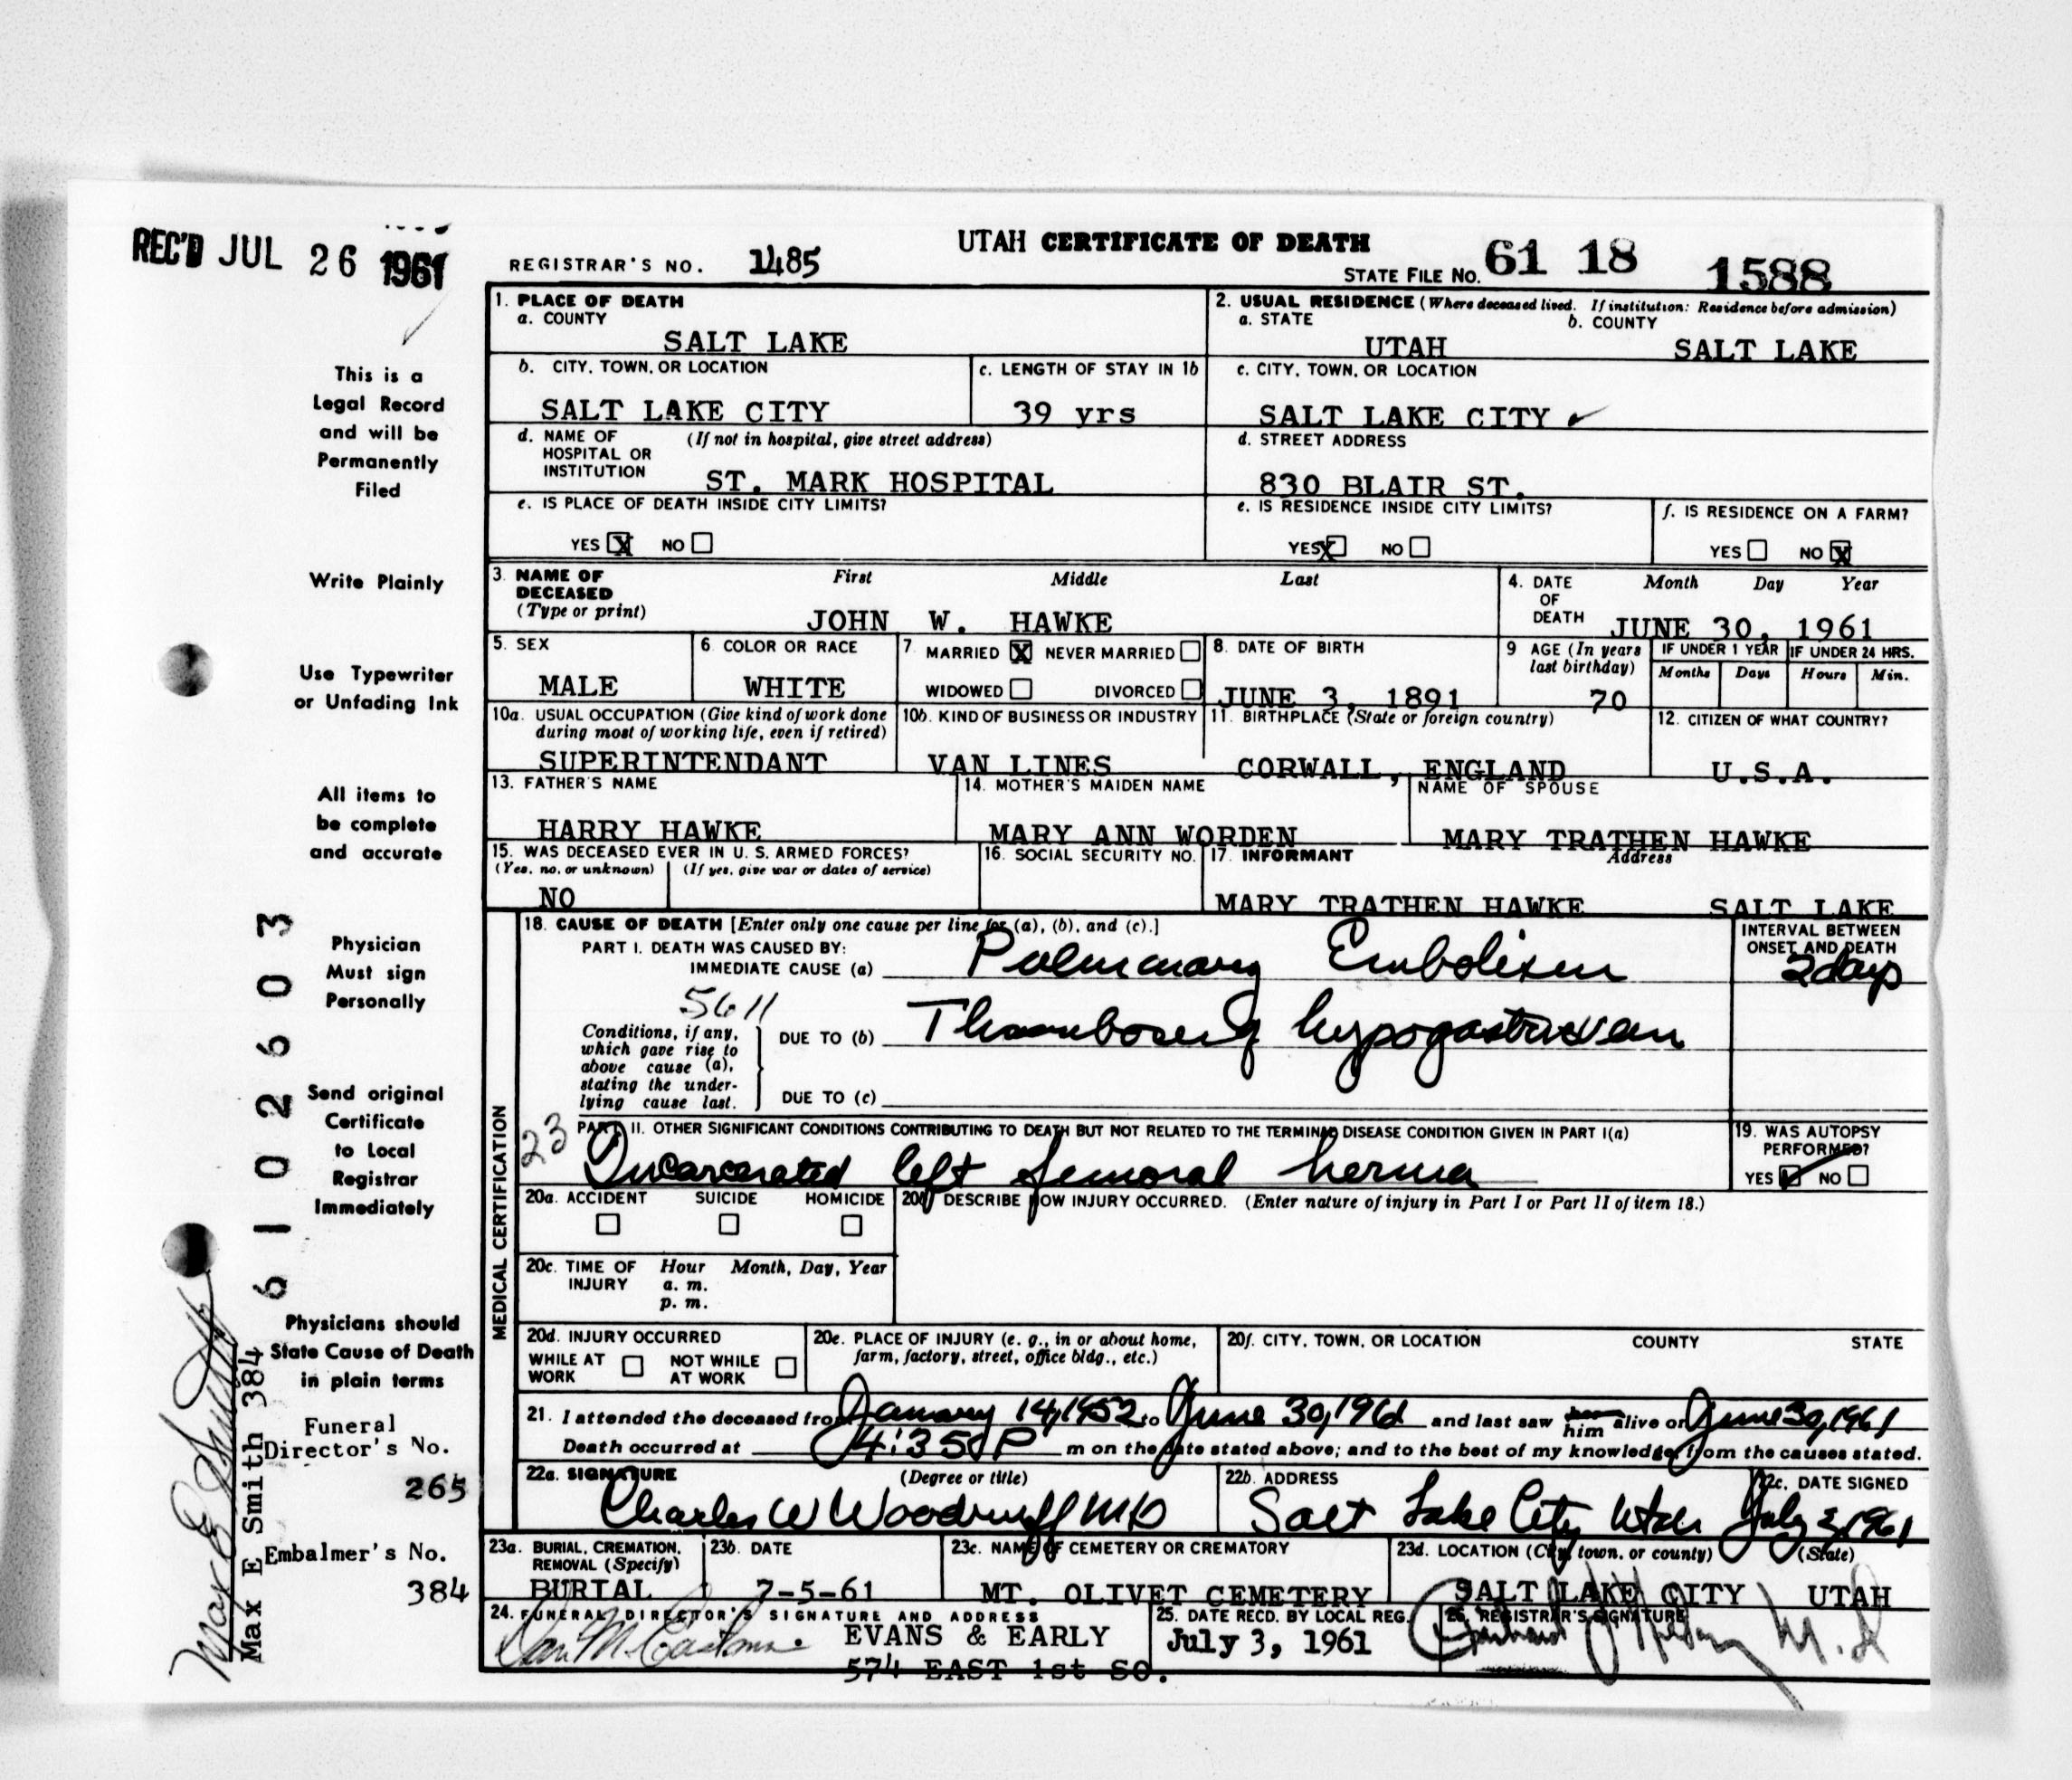 REC'D JUL 26 1961
UTAH CERTIFICATE OF DEATH
REGISTRAR'S NO. 1485
STATE FILE NO. 61 18 1588
1. PLACE OF DEATH
a. COUNTY
SALT LAKE
2. USUAL RESIDENCE (Where deceased lived. If institution: Residence before admission)
a. STATE b. COUNTY
UTAH SALT LAKE
b. CITY, TOWN, OR LOCATION
SALT LAKE CITY
c. LENGTH OF STAY IN 1b
39 yrs
c. CITY, TOWN, OR LOCATION
SALT LAKE CITY
d. NAME OF HOSPITAL OR INSTITUTION (If not in hospital, give street address)
ST. MARK HOSPITAL
d. STREET ADDRESS
830 BLAIR ST.
e. IS PLACE OF DEATH INSIDE CITY LIMITS?
YES X NO
e. IS RESIDENCE INSIDE CITY LIMITS?
YES X NO
f. IS RESIDENCE ON A FARM?
YES NO X
3. NAME OF DECEASED (Type or print)
First Middle Last
JOHN W. HAWKE
4. DATE OF DEATH
Month Day Year
JUNE 30, 1961
5. SEX
MALE
6. COLOR OR RACE
WHITE
7. MARRIED X NEVER MARRIED
WIDOWED DIVORCED
8. DATE OF BIRTH
JUNE 3, 1891
9 AGE (In years last birthday)
70
IF UNDER 1 YEAR IF UNDER 24 HRS.
Months Days Hours Min.
10a. USUAL OCCUPATION (Give kind of work done during most of working life, even if retired)
SUPERINTENDANT
10b. KIND OF BUSINESS OR INDUSTRY
VAN LINES
11. BIRTHPLACE (State or foreign country)
CORWALL, ENGLAND
12. CITIZEN OF WHAT COUNTRY?
U.S.A.
13. FATHER'S NAME
HARRY HAWKE
14. MOTHER'S MAIDEN NAME
MARY ANN WORDEN
NAME OF SPOUSE
MARY TRATHEN HAWKE
15. WAS DECEASED EVER IN U. S. ARMED FORCES?
(Yes, no, or unknown) (If yes, give war or dates of service)
NO
16. SOCIAL SECURITY NO.
17. INFORMANT Address
MARY TRATHEN HAWKE SALT LAKE
MEDICAL CERTIFICATION
18. CAUSE OF DEATH [Enter only one cause per line for (a), (b), and (c).]
PART I. DEATH WAS CAUSED BY:
IMMEDIATE CAUSE (a) Pulmonary Embolism
INTERVAL BETWEEN ONSET AND DEATH
2 days
5611
Conditions, if any, which gave rise to above cause (a), stating the underlying cause last.
DUE TO (b) Thrombosis of hypogastric vein
DUE TO (c)
23
PART II. OTHER SIGNIFICANT CONDITIONS CONTRIBUTING TO DEATH BUT NOT RELATED TO THE TERMINAL DISEASE CONDITION GIVEN IN PART I(a)
Incarcerated left femoral hernia
19. WAS AUTOPSY PERFORMED?
YES NO
20a. ACCIDENT SUICIDE HOMICIDE
20b. DESCRIBE HOW INJURY OCCURRED. (Enter nature of injury in Part I or Part II of item 18.)
20c. TIME OF INJURY Hour Month, Day, Year
a. m.
p. m.
20d. INJURY OCCURRED
WHILE AT WORK NOT WHILE AT WORK
20e. PLACE OF INJURY (e. g., in or about home, farm, factory, street, office bldg., etc.)
20f. CITY, TOWN, OR LOCATION COUNTY STATE
21. I attended the deceased from January 14, 1952 to June 30, 1961 and last saw her him alive on June 30, 1961
Death occurred at 4:35 P m on the date stated above; and to the best of my knowledge, from the causes stated.
22a. SIGNATURE (Degree or title)
Charles W Woodruff MD
22b. ADDRESS
Salt Lake City Utah
22c. DATE SIGNED
July 3, 1961
23a. BURIAL, CREMATION, REMOVAL (Specify)
BURIAL
23b. DATE
7-5-61
23c. NAME OF CEMETERY OR CREMATORY
MT. OLIVET CEMETERY
23d. LOCATION (City, town, or county) (State)
SALT LAKE CITY UTAH
24. FUNERAL DIRECTOR'S SIGNATURE AND ADDRESS
EVANS & EARLY
574 EAST 1st SO.
25. DATE RECD. BY LOCAL REG.
July 3, 1961
26. REGISTRAR'S SIGNATURE
M.D
This is a
Legal Record
and will be
Permanently
Filed
Write Plainly
Use Typewriter
or Unfading Ink
All items to
be complete
and accurate
Physician
Must sign
Personally
Send original
Certificate
to Local
Registrar
Immediately
Physicians should
State Cause of Death
in plain terms
Funeral
Director's No.
265
Embalmer's No.
384
61 02603
Max E Smith
Max E Smith 384